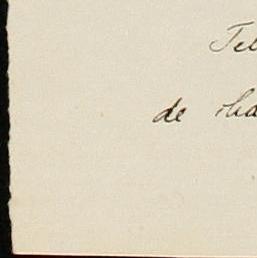 Tel
de